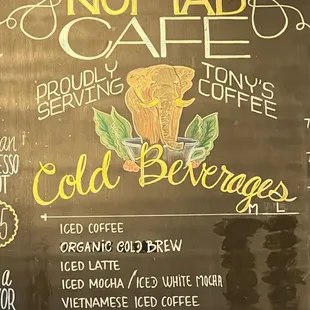 NOMAD
CAFE
PROUDLY
SERVING
TONY'S
COFFEE
Cold Beverages
M L
ICED COFFEE
ORGANIC COLD BREW
ICED LATTE
ICED MOCHA / ICED WHITE MOCHA
VIETNAMESE ICED COFFEE